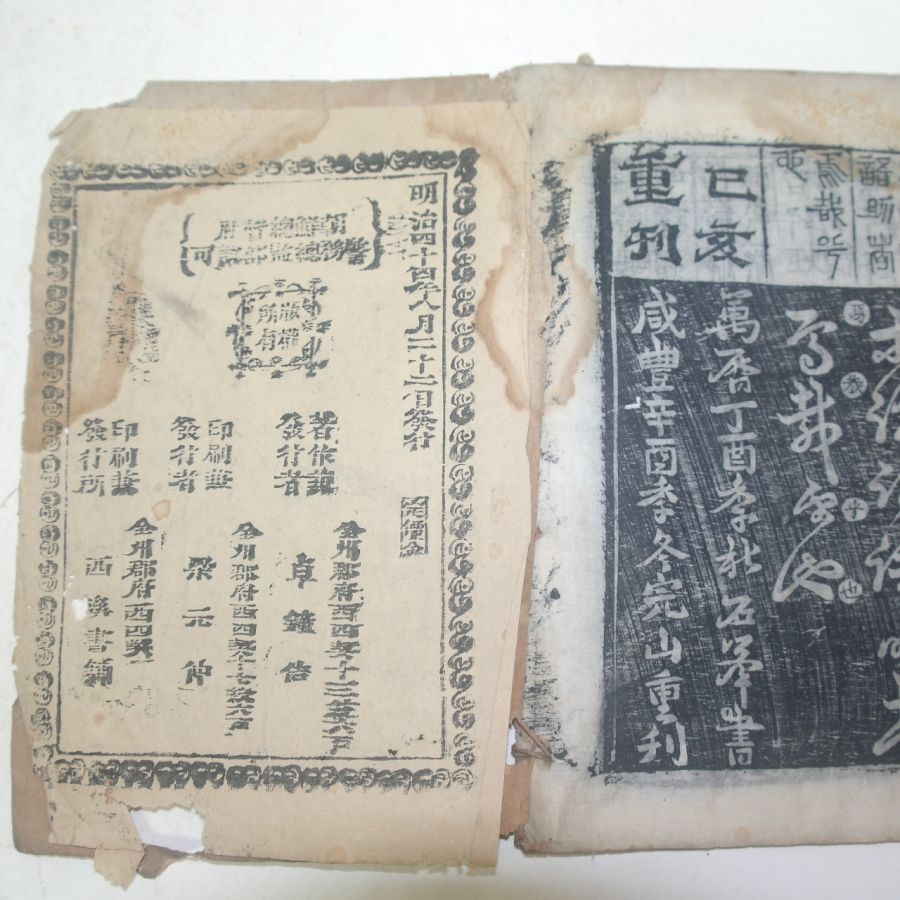 語助者
焉哉乎
也
焉哉乎也
己亥
重刊
萬曆丁酉季秋石峯書
咸豊辛酉季冬完山重刊
明治四十四年八月二十二日發行
定價金
朝鮮總督府
警務總監部認可
版權
所有
著作兼
發行者
全州郡府西四契十三統六戶
卓鍾佶
印刷兼
發行者
全州郡府西四契七統六戶
梁元仲
印刷兼
發行所
全州郡府西四契
西溪書鋪